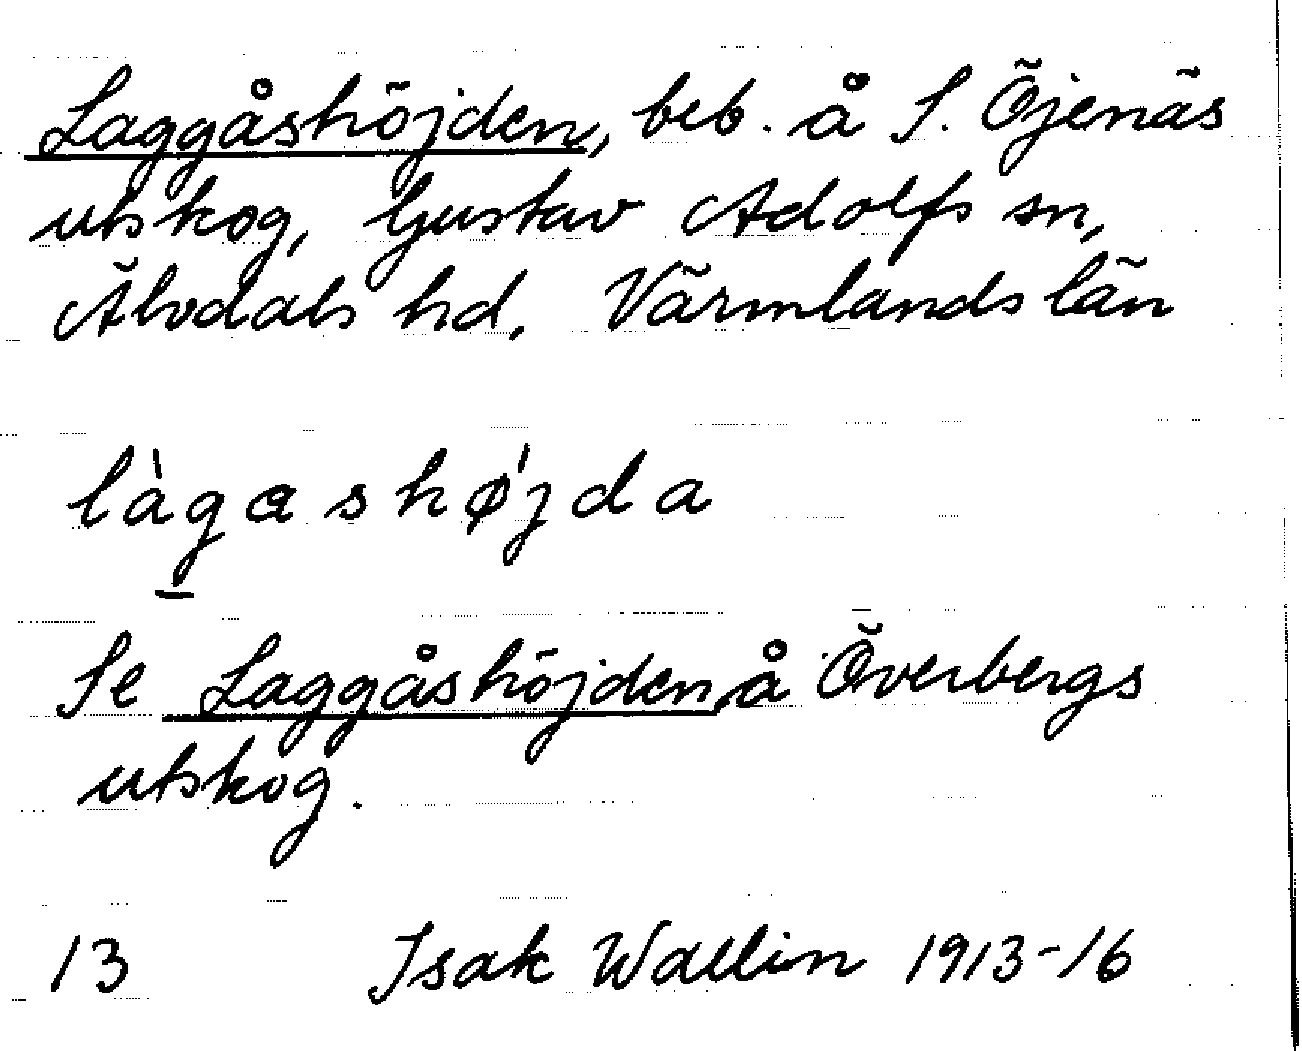 Laggåshöjden, beb. å S. Öjenäs
utskog, Gustav Adolfs sn,
Älvdals hd, Värmlands län
làgashø̀jda
Se Laggåshöjden, å Överbergs
utskog.
13 Isak Wallin 1913-16